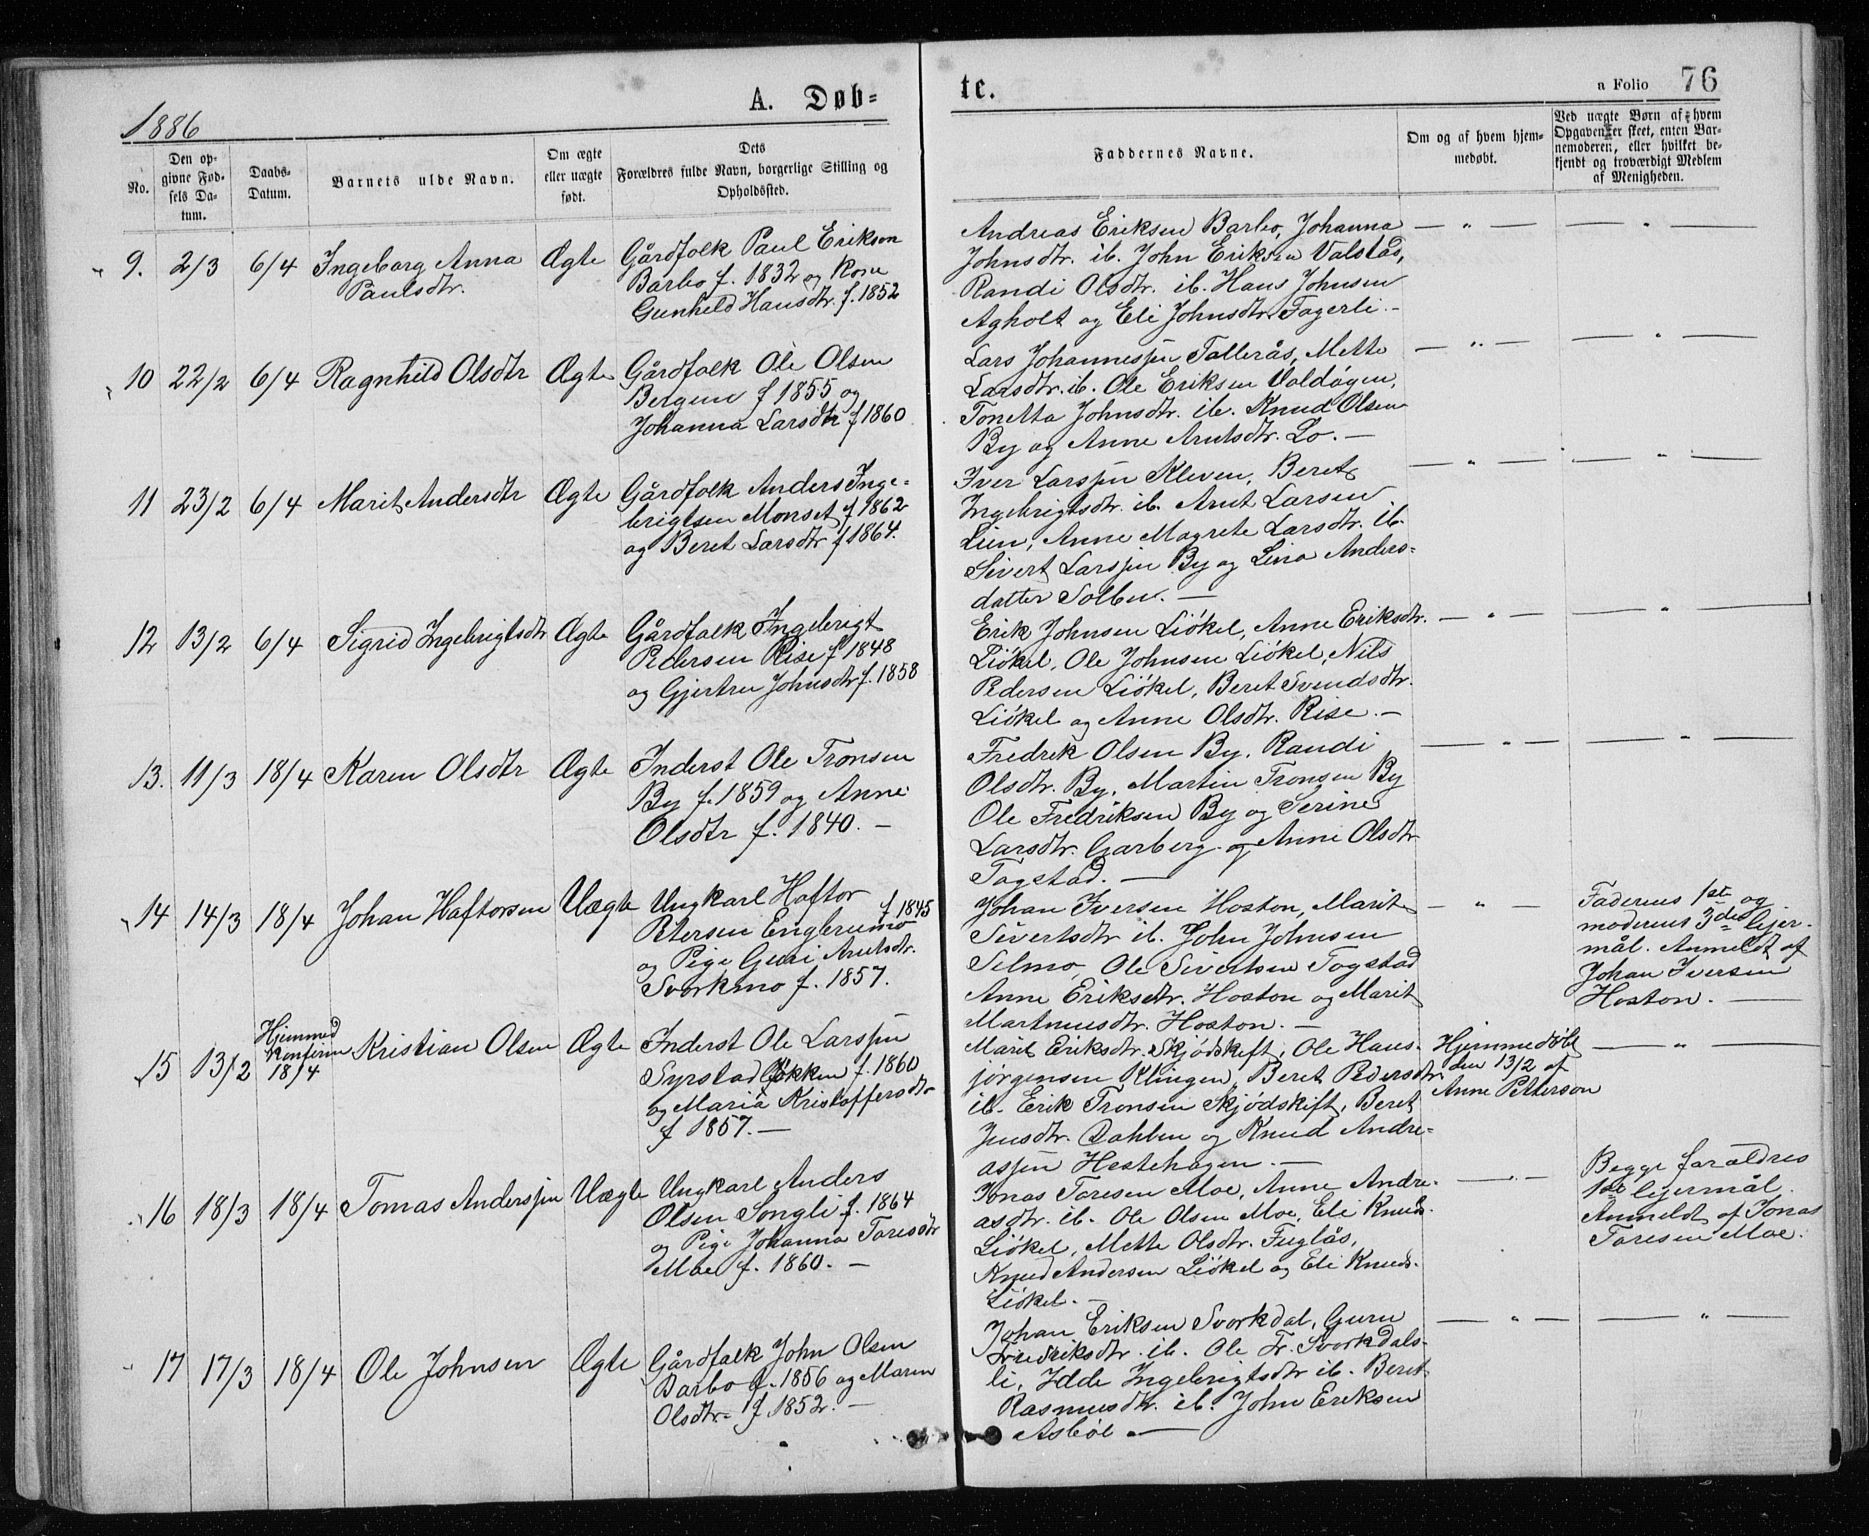 1886
A. Døb-
te.
a Folio 76
No.
Den op-
givne Fød-
sels Da-
tum.
Daabs-
Datum.
Barnets ulde Navn.
Om ægte
eller uægte
født.
Dets
Forældres fulde Navn, borgerlige Stilling og
Opholdssted.
Faddernes Navne.
Om og af hvem hjem-
medøbt.
Ved uægte Børn af hvem
Opgaven er skeet, enten Bar-
nemoderen, eller hvilket be-
kjendt og troværdigt Medlem
af Menigheden.
9. 2/3 6/4 Ingeborg Anna
Paulsdtr.
Ægte
Gårdfolk Paul Eriksen
Barbo f. 1832 og Kone
Gunhild Hansdtr. f. 1852
Andreas Eriksen Barbo, Johanna
Johnsdtr. ib. John Eriksen Valstad,
Randi Olsdtr. ib. Hans Johnsen
Agholt og Eli Johnsdtr. Fagerli. —
— " — — " —
10 22/2 6/4 Ragnhild Olsdtr
Ægte
Gårdfolk Ole Olsen
Bergem f 1855 og
Johanna Larsdtr f 1860
Lars Johannessen Tallerås, Mette
Larsdtr. ib. Ole Eriksen Valdøgen,
Tonetta Johnsdtr. ib. Knud Olsen
By og Anne Arntsdtr. Lo. —
— " — — " —
11 23/2 6/4 Marit Andersdtr
Ægte
Gårdfolk Anders Inge-
brigtsen Monset f 1862
og Beret Larsdtr f 1864.
Iver Larssen Kleven, Beret
Ingebrigtsdtr. ib. Arnt Larsen
Lien, Anne Magrete Larsdtr. ib.
Sivert Larssen By og Lina Anders-
datter Solbu. —
— " — — " —
12 13/2 6/4 Sigrid Ingebrigtsdtr
Ægte
Gårdfolk Ingebrigt
Pedersen Rise f 1848
og Gjertru Johnsdtr f. 1858
Erik Johnsen Liøkel, Anne Eriksdtr.
Liøkel, Ole Johnsen Liøkel, Nils
Pedersen Liøkel, Beret Svendsdtr.
Liøkel og Anne Olsdtr. Rise. —
— " — — " —
13. 11/3 18/4 Karen Olsdtr
Ægte
Inderst Ole Tronsen
By f. 1859 og Anne
Olsdtr f. 1840. —
Fredrik Olsen By, Randi
Olsdtr. By, Martin Tronsen By
Ole Fredriksen By og Serine
Larsdtr. Garberg og Anne Olsdtr
Togstad. —
— " — — " —
14 14/3 18/4 Johan Haftorsen
Uægte
Ungkarl Haftor
Petersen Englerumo f 1845
og Pige Guri Arntsdtr.
Svorkmo f. 1857.
Johan Iversen Hoston, Marit
Sivertsdtr. ib. John Johnsen
Selmo, Ole Sivertsen Togstad
Anne Eriksdtr. Hoston og Marit
Martinusdtr. Hoston. —
— " —
Faderens 1ste og
moderens 3die lejer-
mål. Anmeldt af
Johan Iversen
Hoston. —
15 13/2
Hjemmed
Konferim
18/4
Kristian Olsen
Ægte
Inderst Ole Larssen
Syrstadløkken f. 1860
og Maria Kristoffersdtr
f 1857. —
Marit Eriksdtr. Skjødskift, Ole Hans-
jørgensen Klingen, Beret Pedersdtr.
ib. Erik Tronsen Skjødskift, Beret
Jensdtr. Dahlen og Knud Andre-
assen Hestehagen. —
Hjemmedøbt
den 13/2 af
Anne Peterson
— " —
16 18/3 18/4 Tomas Anderssen
Uægte
Ungkarl Anders
Olsen Songli f. 1864
og Pige Johanna Toresdtr
Moe f. 1860. —
Jonas Toresen Moe, Anne Andre-
asdtr. ib. Ole Olsen Moe, Eli Knuds.
Liøkel, Mette Olsdtr. Fuglås,
Knud Andersen Liøkel og Eli Knuds.
Liøkel. —
— " —
Begge forældres
1ste lejermål.
Anmeldt af Jonas
Toresen Moe.
17 17/3 18/4 Ole Johnsen
Ægte
Gårdfolk John Olsen
Barbo f. 1856 og Maren
Olsdtr. f 1852. —
Johan Eriksen Svorkdal, Guru
Fredriksdtr. ib. Ole Fr. Svorkdals-
li, Idde Ingebrigtsdtr ib. Beret
Rasmusdtr. ib. John Eriksen
Asbøl. —
— " — — " —